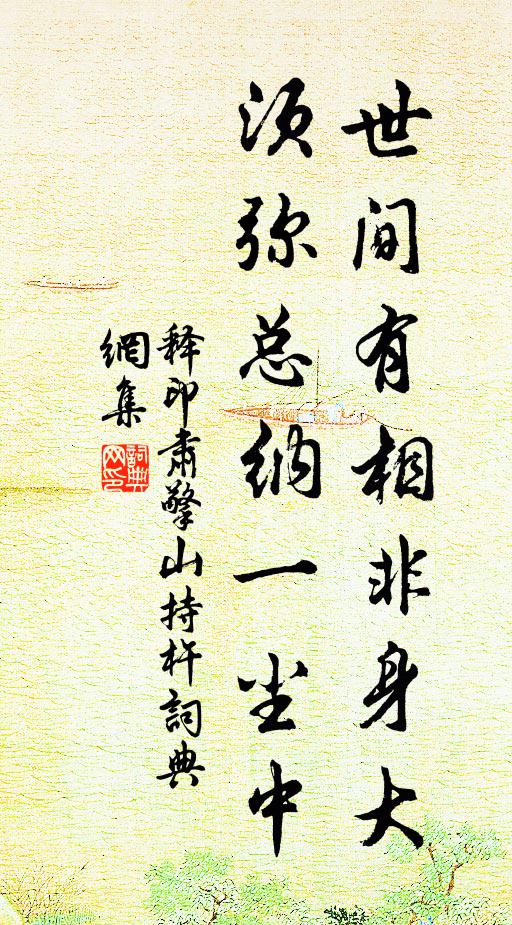 世间有相非身大
须弥总纳一尘中
释印肃擎山持杵詞典
網集
詞典
网印